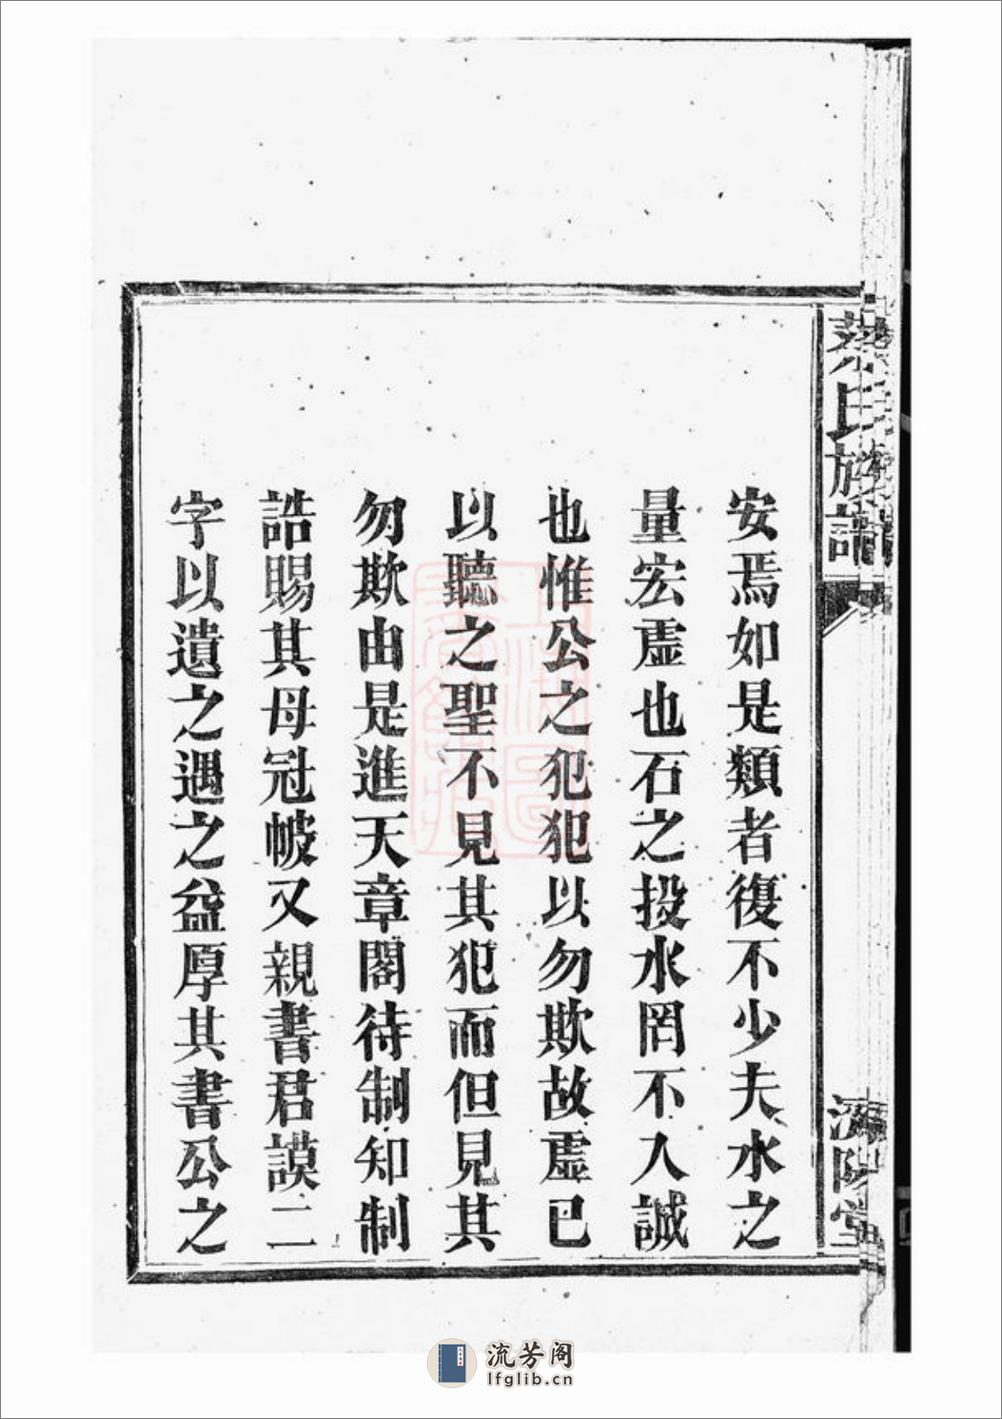 蔡氏族譜
濟陽堂
安焉如是類者復不少夫水之
量宏虛也石之投水罔不入誠
也惟公之犯犯以勿欺故虛已
以聽之聖不見其犯而但見其
勿欺由是進天章閣待制知制
誥賜其母冠帔又親書君謨二
字以遺之遇之益厚其書公之
流芳阁
lfglib.cn